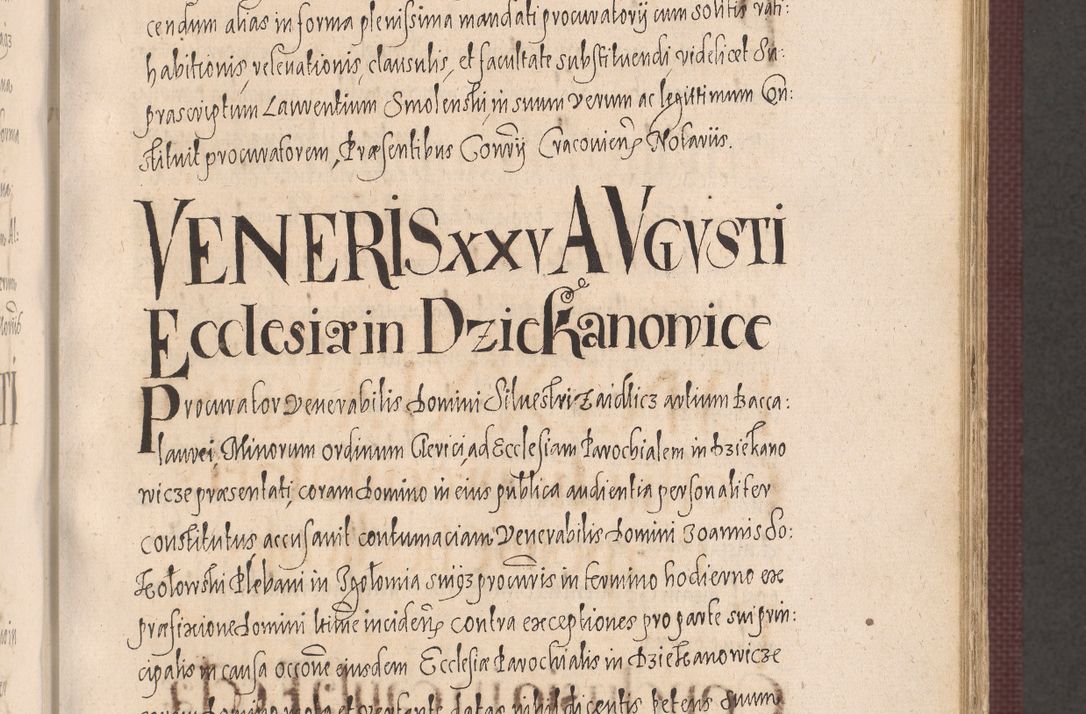 cendum alias in forma plenissima mandati procuratorij cum solitis rati:
habitionis, relevationis, clausulis, et facultate substituendi videlicet Su:
prascriptum Lawrentium Smolenski, in suum verum ac legittimum Con:
stituit procuratorem, Præsentibus Conrij Cracovien̄ Notariis.
VENERIS XXV AVGVSTI
Ecclesiæ in Dziekanowice
Procurator Venerabilis Domini Silvestri Zaidlicz artium Bacca:
laurei, Minorum ordinum Clerici, ad Ecclesiam Parochialem in Dziekano
wicze præsentati, coram Domino in eius publica audientia personaliter
constitutus accusavit contumaciam Venerabilis Domini Joannis So:
kołowski Plebani in Igołomia suiq3 procuris in termino hodierno ex
præfixione Domini ltime inciden̄ contra exceptiones pro parte sui prin:
cipalis in causa occone eiusdem Ecclesiæ Parochialis in Dziekanowicze
coram Domino mota et vertente datas nihil dicentis petens Suum